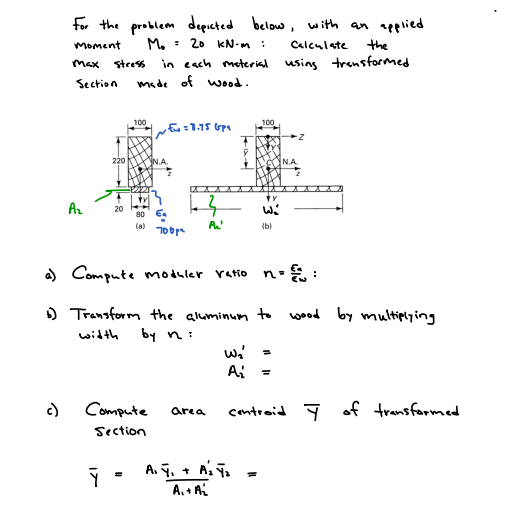 For the problem depicted below, with an applied
moment M₀ = 20 kN·m : Calculate the
max stress in each material using transformed
section made of wood.
100
Ew = 8.75 Gpa
100
z
y
ȳ
220
N.A.
z
C
N.A.
z
A₂
20
y
80
Ea = 70 Gpa
A₂'
y
W₂'
(a)
(b)
a) Compute modular ratio n = Ea/Ew :
b) Transform the aluminum to wood by multiplying
width by n :
W₂' =
A₂' =
c) Compute area centroid ȳ of transformed
section
ȳ = A₁ȳ₁ + A₂'ȳ₂ / A₁ + A₂' =